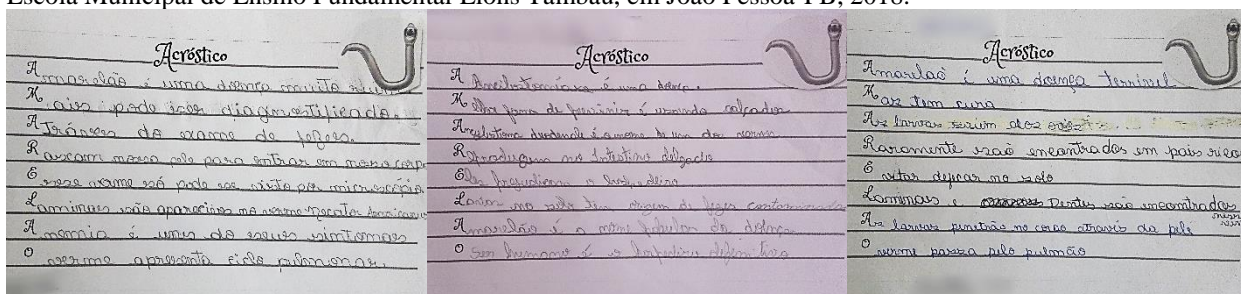 Escola Municipal de Ensino Fundamental Lions Tambaú, em João Pessoa-PB, 2018.
Acróstico
Amarelão é uma doença muito
Mais pode ser diagnostificada.
Através do exame de fezes.
Rascam nossa pele para entrar em nosso corpo
Esse verme só pode ser visto por microscópio
Laminas são aparecidas no verme Necator Americanus
Anemia é umas do seus simtomas
O verme apresenta ciclo pulmonar.
Acróstico
A Ancilostomíase é uma doença.
Melhor forma de previnir é usando calçados
Ancylostoma duodenale é o nome de um dos vermes
Reproduzem no Intestino delgado
Eles prejudicam o hospedeiro
Larvas no solo tem origem de fezes contaminadas
Amarelão é o nome popular da doença
O Ser humano é o hospedeiro definitivo
Acróstico
Amarelaõ é uma doença terrivel
Mas tem cura
As larvas
Raramente são encontrados em país rico
Evitar defecar no solo
Laminas e Dentes são encontrados
As larvas penetrão no corpo através da pele
O verme passa pelo pulmão